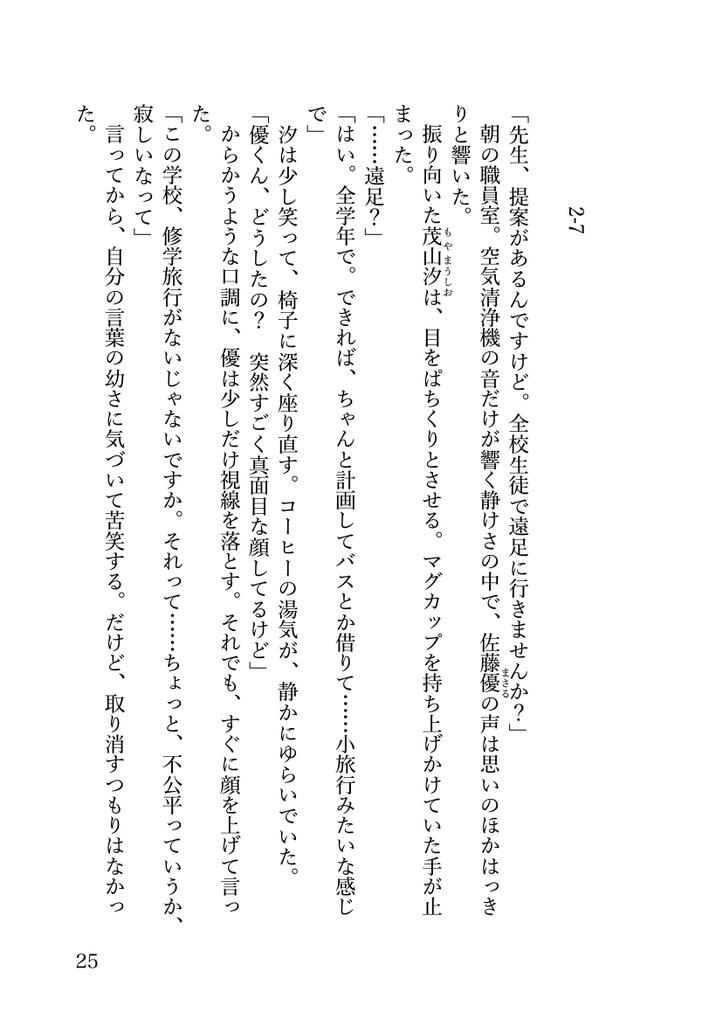 2-7
「先生、提案があるんですけど。全校生徒で遠足に行きませんか？」
朝の職員室。空気清浄機の音だけが響く静けさの中で、佐藤優の声は思いのほかはっき
まさる
りと響いた。
振り向いた茂山汐は、目をぱちくりとさせる。マグカップを持ち上げかけていた手が止
もやまうしお
まった。
「……遠足？」
「はい。全学年で。できれば、ちゃんと計画してバスとか借りて……小旅行みたいな感じ
で」
汐は少し笑って、椅子に深く座り直す。コーヒーの湯気が、静かにゆらいでいた。
「優くん、どうしたの？　突然すごく真面目な顔してるけど」
からかうような口調に、優は少しだけ視線を落とす。それでも、すぐに顔を上げて言っ
た。
「この学校、修学旅行がないじゃないですか。それって……ちょっと、不公平っていうか、
寂しいなって」
言ってから、自分の言葉の幼さに気づいて苦笑する。だけど、取り消すつもりはなかっ
た。
25